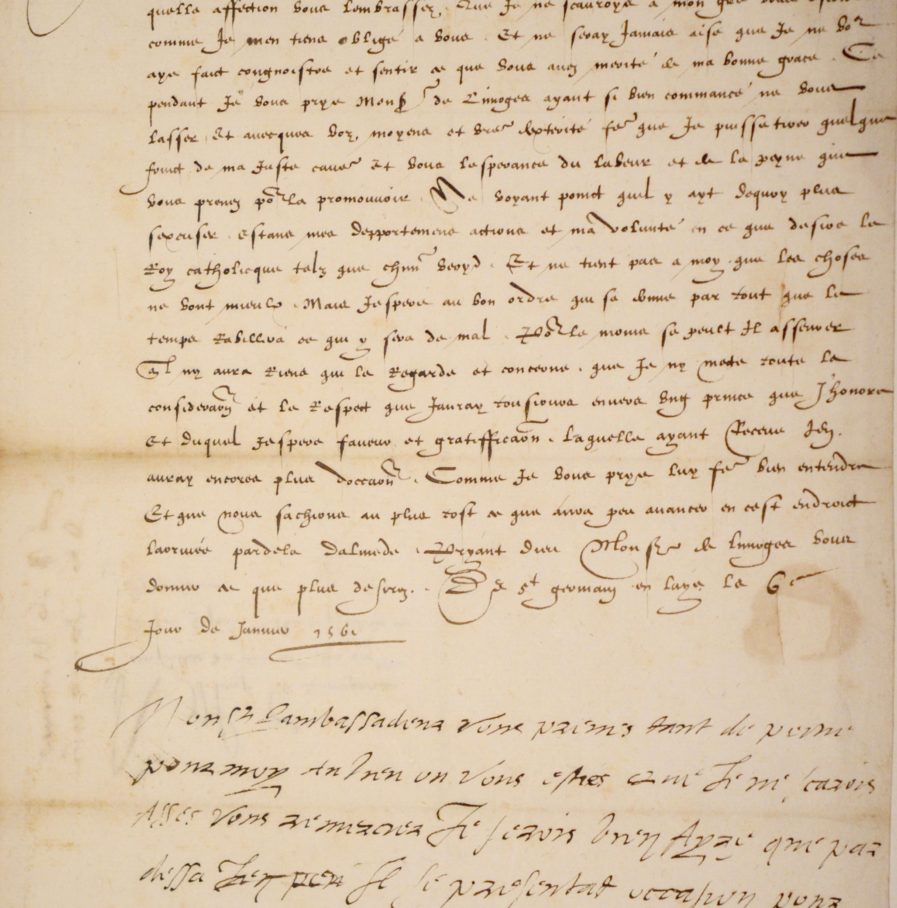 quelle affection vous lembrassez, Que Je ne scauroye a mon gre vous
comme Je men tiens obligé a vous. Et ne seray Jamais aise que Je ne vo9
aye faict congnoistre et sentir ce que vous avez merité de ma bonne grace. Ce
pendant Je vous prye Monsr de Limoges ayant si bien commancé ne vous
lasser. Et avecques voz moyens et vre dexterité fe que Je puisse tirer quelque
fruict de ma Juste cause Et vous lesperance du labeur et de la peyne que
vous prenez pour la promouvoir. Ne voyant poinct quel y ayt dequoy plus
sexcuser. estans mes depportemens actions et ma volunté en ce que desire le
Roy catholicque telz que chun veoyd. Et ne tient pas a moy que les choses
ne vont mieulx. Mais Jespere au bon ordre qui se donne par tout que le
temps Rabillera ce qui y sera de mal. Pour le moins se peult Il asseurer
Quil ny aura Riens qui le Regarde et concerne. que Je ny mecte toute la
consideraon et le Respect que Jauray tousiours envers ung prince que Jhonore
Et duquel Jespere faveur et gratifficaon. laquelle ayant Receue Jen
auray encores plus doccaon. Comme Je vous prye luy fe bien entendre
Et que nous sachions au plus tost ce que aura peu avancer en cest endroict
larrivée pardela dalmede. Pryant dieu Monsr de lymoges vous
donner ce que plus desirez. De st germain en laye le 6e
Jour de Janvier 1561
Monsr lambassadeur vous prenes tant de peine
pour moy au lieu ou vous estes que Je ne scarois
Asses vous remercier Je serois bien Ayze que par
dessa Il se presentat occasion pour